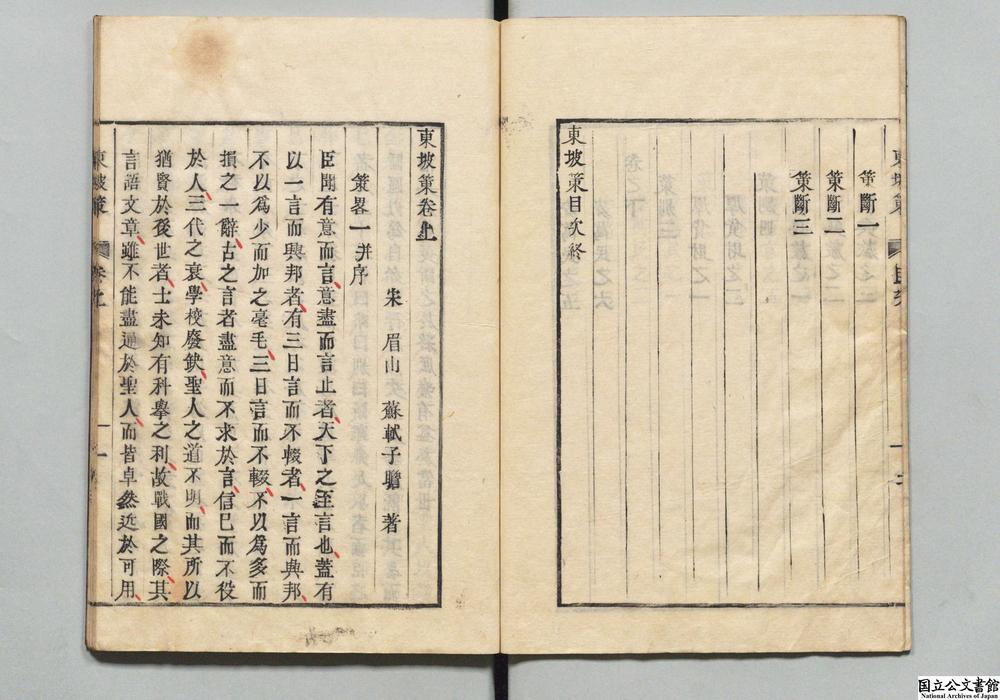 策斷一
策斷二
策斷三
東坡策目次終
東坡策卷上
策畧一并序
宋 眉山 蘇軾子瞻 著
臣聞有意而言意盡而言止者天下之至言也蓋有
以一言而興邦者有三日言而不輟者一言而興邦
不以為少而加之毫毛三日言而不輟不以為多而
損之一辭古之言者盡意而不求於言信已而不役
於人三代之衰學校廢缺聖人之道不明而其所以
猶賢於後世者士未知有科擧之利故戰國之際其
言語文章雖不能盡通於聖人而皆卓然近於可用
東坡策 卷上 一
国立公文書館
National Archives of Japan